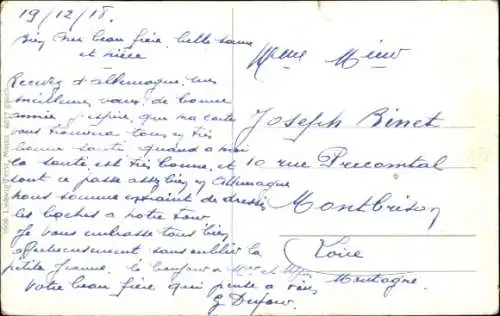 19/12/18.
Bien cher beau frère, belle soeur
et nièce
Recevez d'allemagne, mes
meilleurs vœux de bonne
année j'espère que ma carte
vous trouvera tous en très
bonne santé quand a moi
la santé est très bonne et
tout ce passe assez bien en Allemagne
nous sommes en train de dresser
les boches a notre tour
Je vous embrasse tous bien
affectueusement sans oublier la
petite Jeanne. le bonjour a Mr et Mme
Votre beau frère qui pense a vous
Mme Mieur
Joseph Binet
10 rue Precomtal
Montbrison
Loire
Ludwig Feist, Mainz